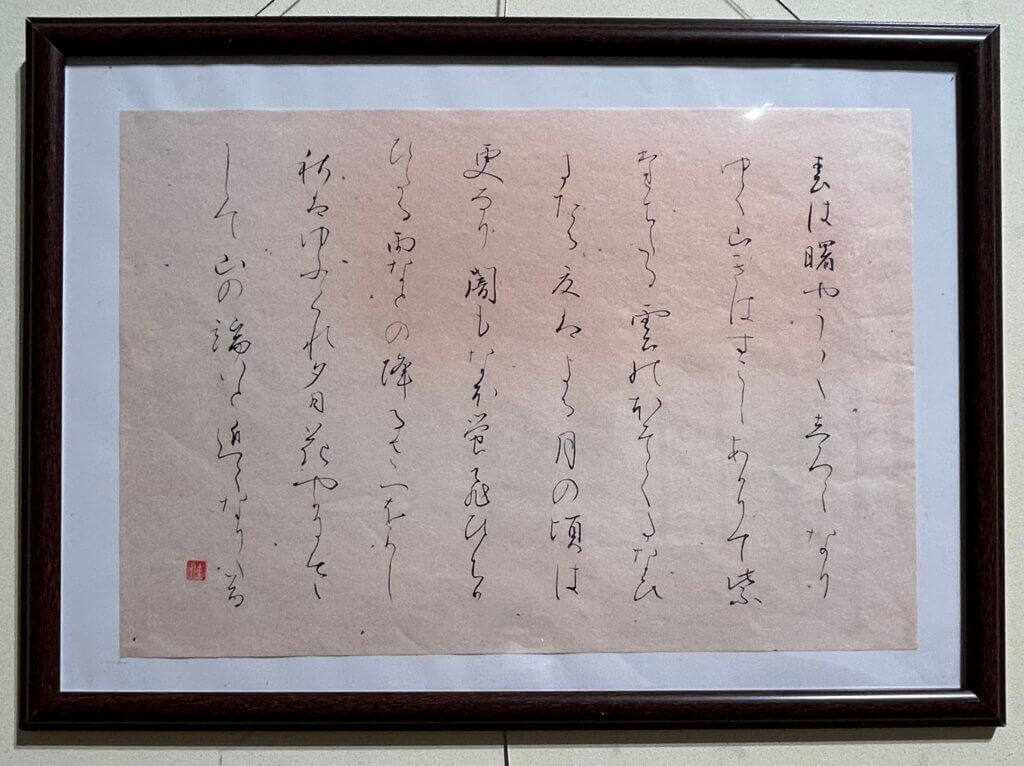 春は曙やう〱しろくなり
ゆく山きはすこしあかりて紫
たちたる雲のほそくたなび
きたる夏はよる月の頃は
更なり闇もなほ蛍飛ひちか
ひたる雨なとの降るさへをかし
秋はゆふくれ夕日花やかにさ
して山の端いと近くなりたる